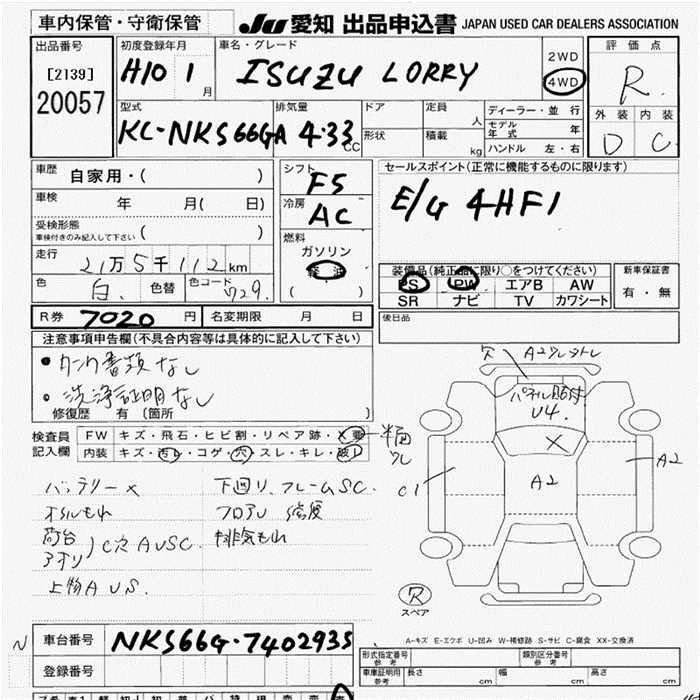 車内保管・守衛保管
JU 愛知 出品申込書 JAPAN USED CAR DEALERS ASSOCIATION
出品番号
[2139]
20057
初度登録年月
H10 1 月
車名・グレード
ISUZU LORRY
2WD
4WD
評価点
R
外装 内装
D C
型式
KC-NKS66GA
排気量
4.33 CC
ドア
形状
定員 人
積載 kg
ディーラー・並行
モデル年式 年
ハンドル 左・右
車歴 自家用・( )
車検 年 月( 日)
受検形態
車検付きのみ記入して下さい ( )
走行 21万5千112km
色 白. 色替 色コード 729.
シフト
F5
冷房
AC
燃料
ガソリン
軽油
( )
セールスポイント(正常に機能するものに限ります)
E/G 4HF1
装備品(純正品に限り○をつけてください)
PS PW エアB AW
SR ナビ TV カワシート
新車保証書
有・無
後日品
R券 7020 円 名変期限 月 日
注意事項申告欄(不具合内容等は具体的に記入して下さい)
・タンク書類なし
・洗浄証明なし
修復歴 有〔箇所 〕
検査員
記入欄
FW キズ・飛石・ヒビ割・リペア跡・X要
内装 キズ・汚レ・コゲ・穴・スレ・キレ・破レ
バッテリー×
オイルもれ
荷台
アオリ )C穴 AUSC.
上物AUS.
下回り、フレームSC.
フロアU 
排気もれ
穴 A2
パネル貼付
U4.
A2
C1
A2
穴
スペア
A-キズ E-エクボ U-凹み W-補修跡 S-サビ C-腐食 XX-交換済
N
車台番号 NKS66G-7402935
登録番号
型式指定番号
参考
類別区分番号
参考
車庫証明用
参考
長さ cm 幅 cm 高さ cm